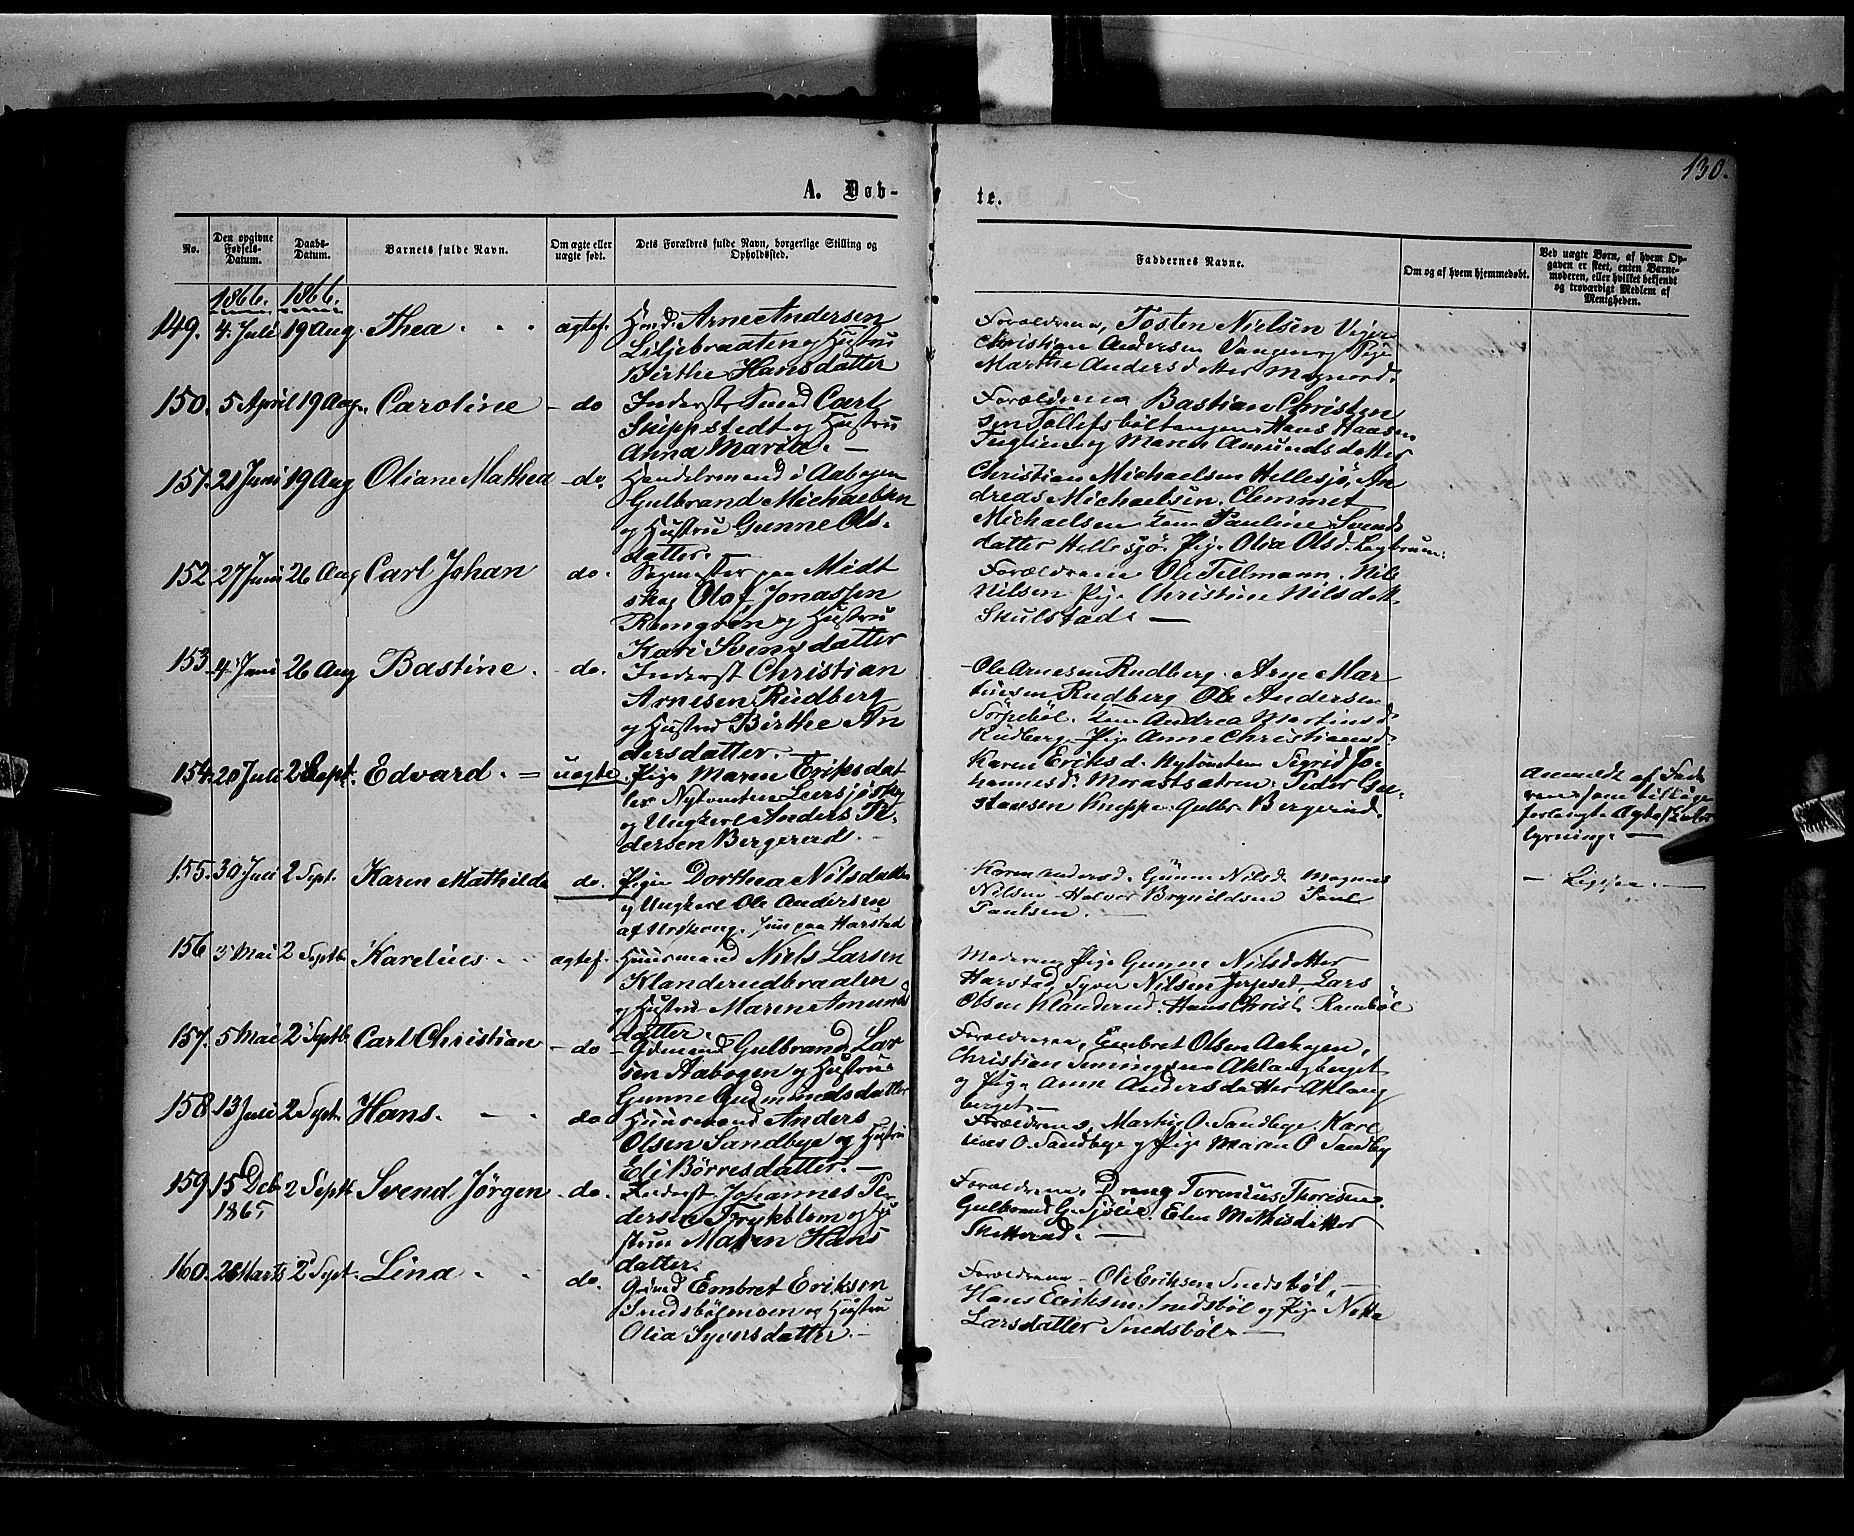 130.
A. Døb-
te.
No.
Den opgivne Fødsels-Datum.
Daabs-Datum.
Barnets fulde Navn.
Om ægte eller uægte født.
Dets Forældres fulde Navn, borgerlige Stilling og Opholdssted.
Faddernes Navne.
Om og af hvem hjemmedøbt.
Ved uægte Børn, af hvem Opgaven er skeet, enten Barnemoderen, eller hvilket bekjendt og troværdigt Medlem af Menigheden.
1866. 1866.
149. 4 Juli 19 Aug. Thea ægtef. Arne Andersen
Liljebraaten og Hustru
Birthe Hansdatter
Forældrene, Tosten Nielsen
Christian Andersen Vangen og Pige
Marthe Andersdatter Magnord.
150. 5 April 19 Aug. Caroline - do Inderst Svend Carl
Skippstedt og Hustru
Anna Maria. -
Forældrene Bastian Christen
sen Tollefsbøltangen Hans Haagen
og Maren Amundsdatter
151. 21 Juni 19 Aug Oliane Mathea - do. Handelsmand i Aabogen
Gulbrand Michaelsen
og Hustru Gunne Ols-
datter. -
Christian Michaelsen Hellesjø, An
dreas Michaelsen. Clemmet
Michaelsen Kone Pauline Svends
datter Hellesjø. Pige Olia Olsd.
152. 27 Juni 26 Aug Carl Johan do. Sagmester paa Midt
skog Olof Jonassen
og Hustru
Kari Svensdatter
Forældrene Ole Tillmann. Nils
Nilsen Pige Christine Nilsdatt.
Skulstad. -
153. 4 Juni 26 Aug Bastine. - do. Inderst Christian
Arnesen Rudberg
og Hustru Birthe An
dersdatter. -
Ole Arnesen Rudberg. Arne Mar
tinsen Rudberg Ole Andersen
Sørpebøl. Kone Andrea Martinsd.
Rudberg Pige Anne Christiansd.
154. 20 Juli 2 Sept. Edvard. = uægte. Pige Maren Eriksdat
ter Nytomten Leersjøskog
og Ungkarl Anders Pe-
dersen Bergerud. -
Karen Eriksd. Nytomten Sigrid Jo-
hannesd. Morastsætren. Peder Gu-
stavsen Knappe. Gulbr. Bergerud.
Anmeldt af Fad
som tillige
forlangte Ægte
lysning. -
155. 30 Juli 2 Sept. Karen Mathilde do. Pige Dorthea Nilsdatter
og Ungkarl Ole Andersen
af Urskoug. Hun paa Harstad
Karen Andersd. Gunne Nilsd. Magnus
Nilsen Halvor Brynildsen Paul
Paulsen. -
- Ligesaa. -
156 3 Mai 2 Septb. Karelius ægtef. Huusmand Niels Larsen
Klanderudbraaten
og Hustru Maren Amunds
datter.
Moderen Pige Gunne Nilsdatter
Harstad, Syver Nilsen Jerpset, Lars
Olsen Klanderud. Hans Christ.
157. 5 Mai 2 Septb. Carl Christian - do - Gulbrand Lar
sen Aabogen og Hustru
Gunne Gudmundsdatter
Forældrene, Embret Olsen Aabogen,
Christian Aklangberget
og Pige Anne Andersdatter Aklang
berget. -
158 13 Juli 2 Sept. Hans. do Huusmand Anders
Olsen Sandbye og Hustru
Eli Børresdatter. -
Forældrene, Martin O. Sandbye. Kare
lius O. Sandbye og Pige Maren O Sandby
159 15 Deb 2 Septb. Svend Jørgen - do. Inderst Johannes Pe-
1865
dersen Frykblem og Hu
stru Maren Hans
datter.
Forældrene, Dreng Torenius Thoresen
Gulbrand G. Sjølie. Elen Mathisdatter
Skitterud. -
160. 28 Marts 2 Sept. Lina do. Embret Eriksen
Snedsbølmoen og Hustru
Olia Syversdatter. -
Forældrene - Ole Eriksen Snedsbøl, -
Hans Eriksen Snedsbøl og Pige Netta
Larsdatter Snedsbøl. -